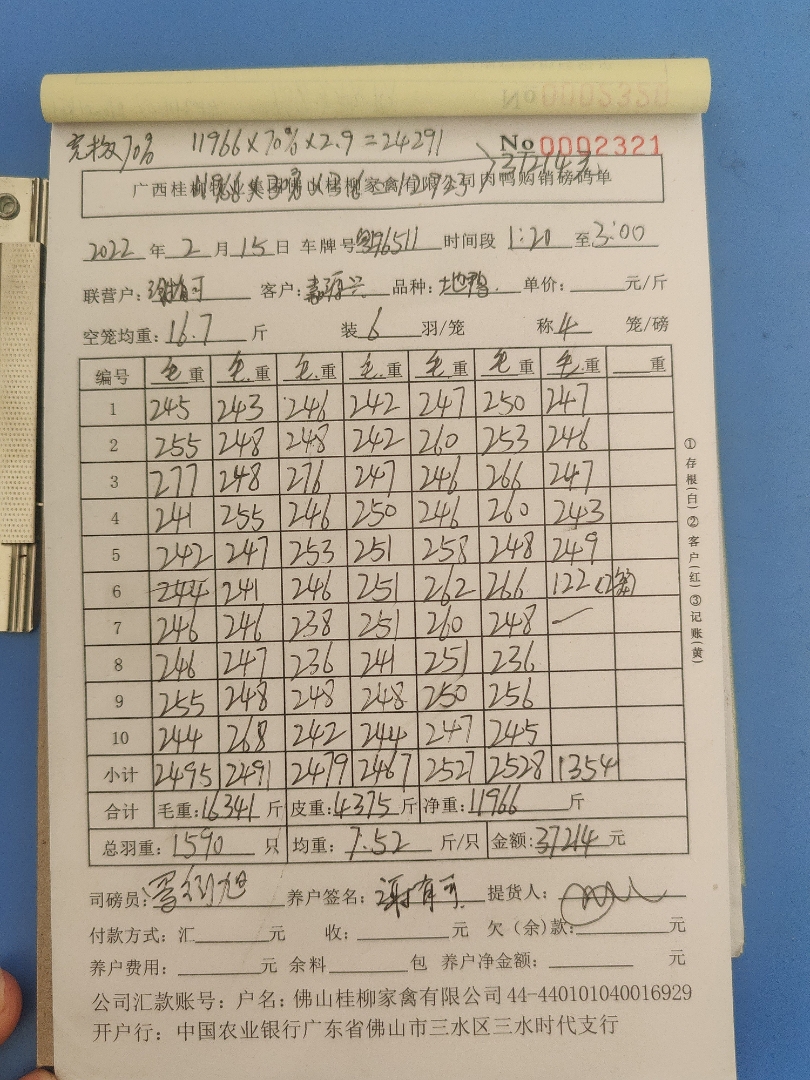 壳扳70% 11966×70%×2.9=24291
No 0002321
37214元
广西桂柳牧业集团佛山桂柳家禽有限公司肉鸭购销磅码单
2022 年 2 月 15 日 车牌号 粤96511 时间段 1:20 至 3:00
联营户: 谢有可 客户: 嘉源兴 品种: 地鸭 单价: 元/斤
空笼均重: 16.7 斤 装 6 羽/笼 称 4 笼/磅
编号 毛重 毛重 毛重 毛重 毛重 毛重 毛重 重
1 245 243 246 242 247 250 247
2 255 248 248 242 260 253 246
3 277 248 276 247 246 266 247
4 241 255 246 250 246 260 243
5 242 247 253 251 258 248 249
6 244 241 246 251 262 266 122 (2笼)
7 246 246 238 251 260 248 —
8 246 247 236 241 251 236
9 255 248 248 248 250 256
10 244 268 242 244 247 245
小计 2495 2491 2479 2467 2527 2528 1354
合计 毛重: 16341 斤 皮重: 4375 斤 净重: 11966 斤
总羽重: 1590 只 均重: 7.52 斤/只 金额: 37214 元
司磅员: 养户签名: 谢有可 提货人:
付款方式: 汇 元 收: 元 欠(余)款: 元
养户费用: 元 余料 包 养户净金额: 元
公司汇款账号: 户名: 佛山桂柳家禽有限公司 44-440101040016929
开户行: 中国农业银行广东省佛山市三水区三水时代支行
①存根(白)②客户(红)③记账(黄)